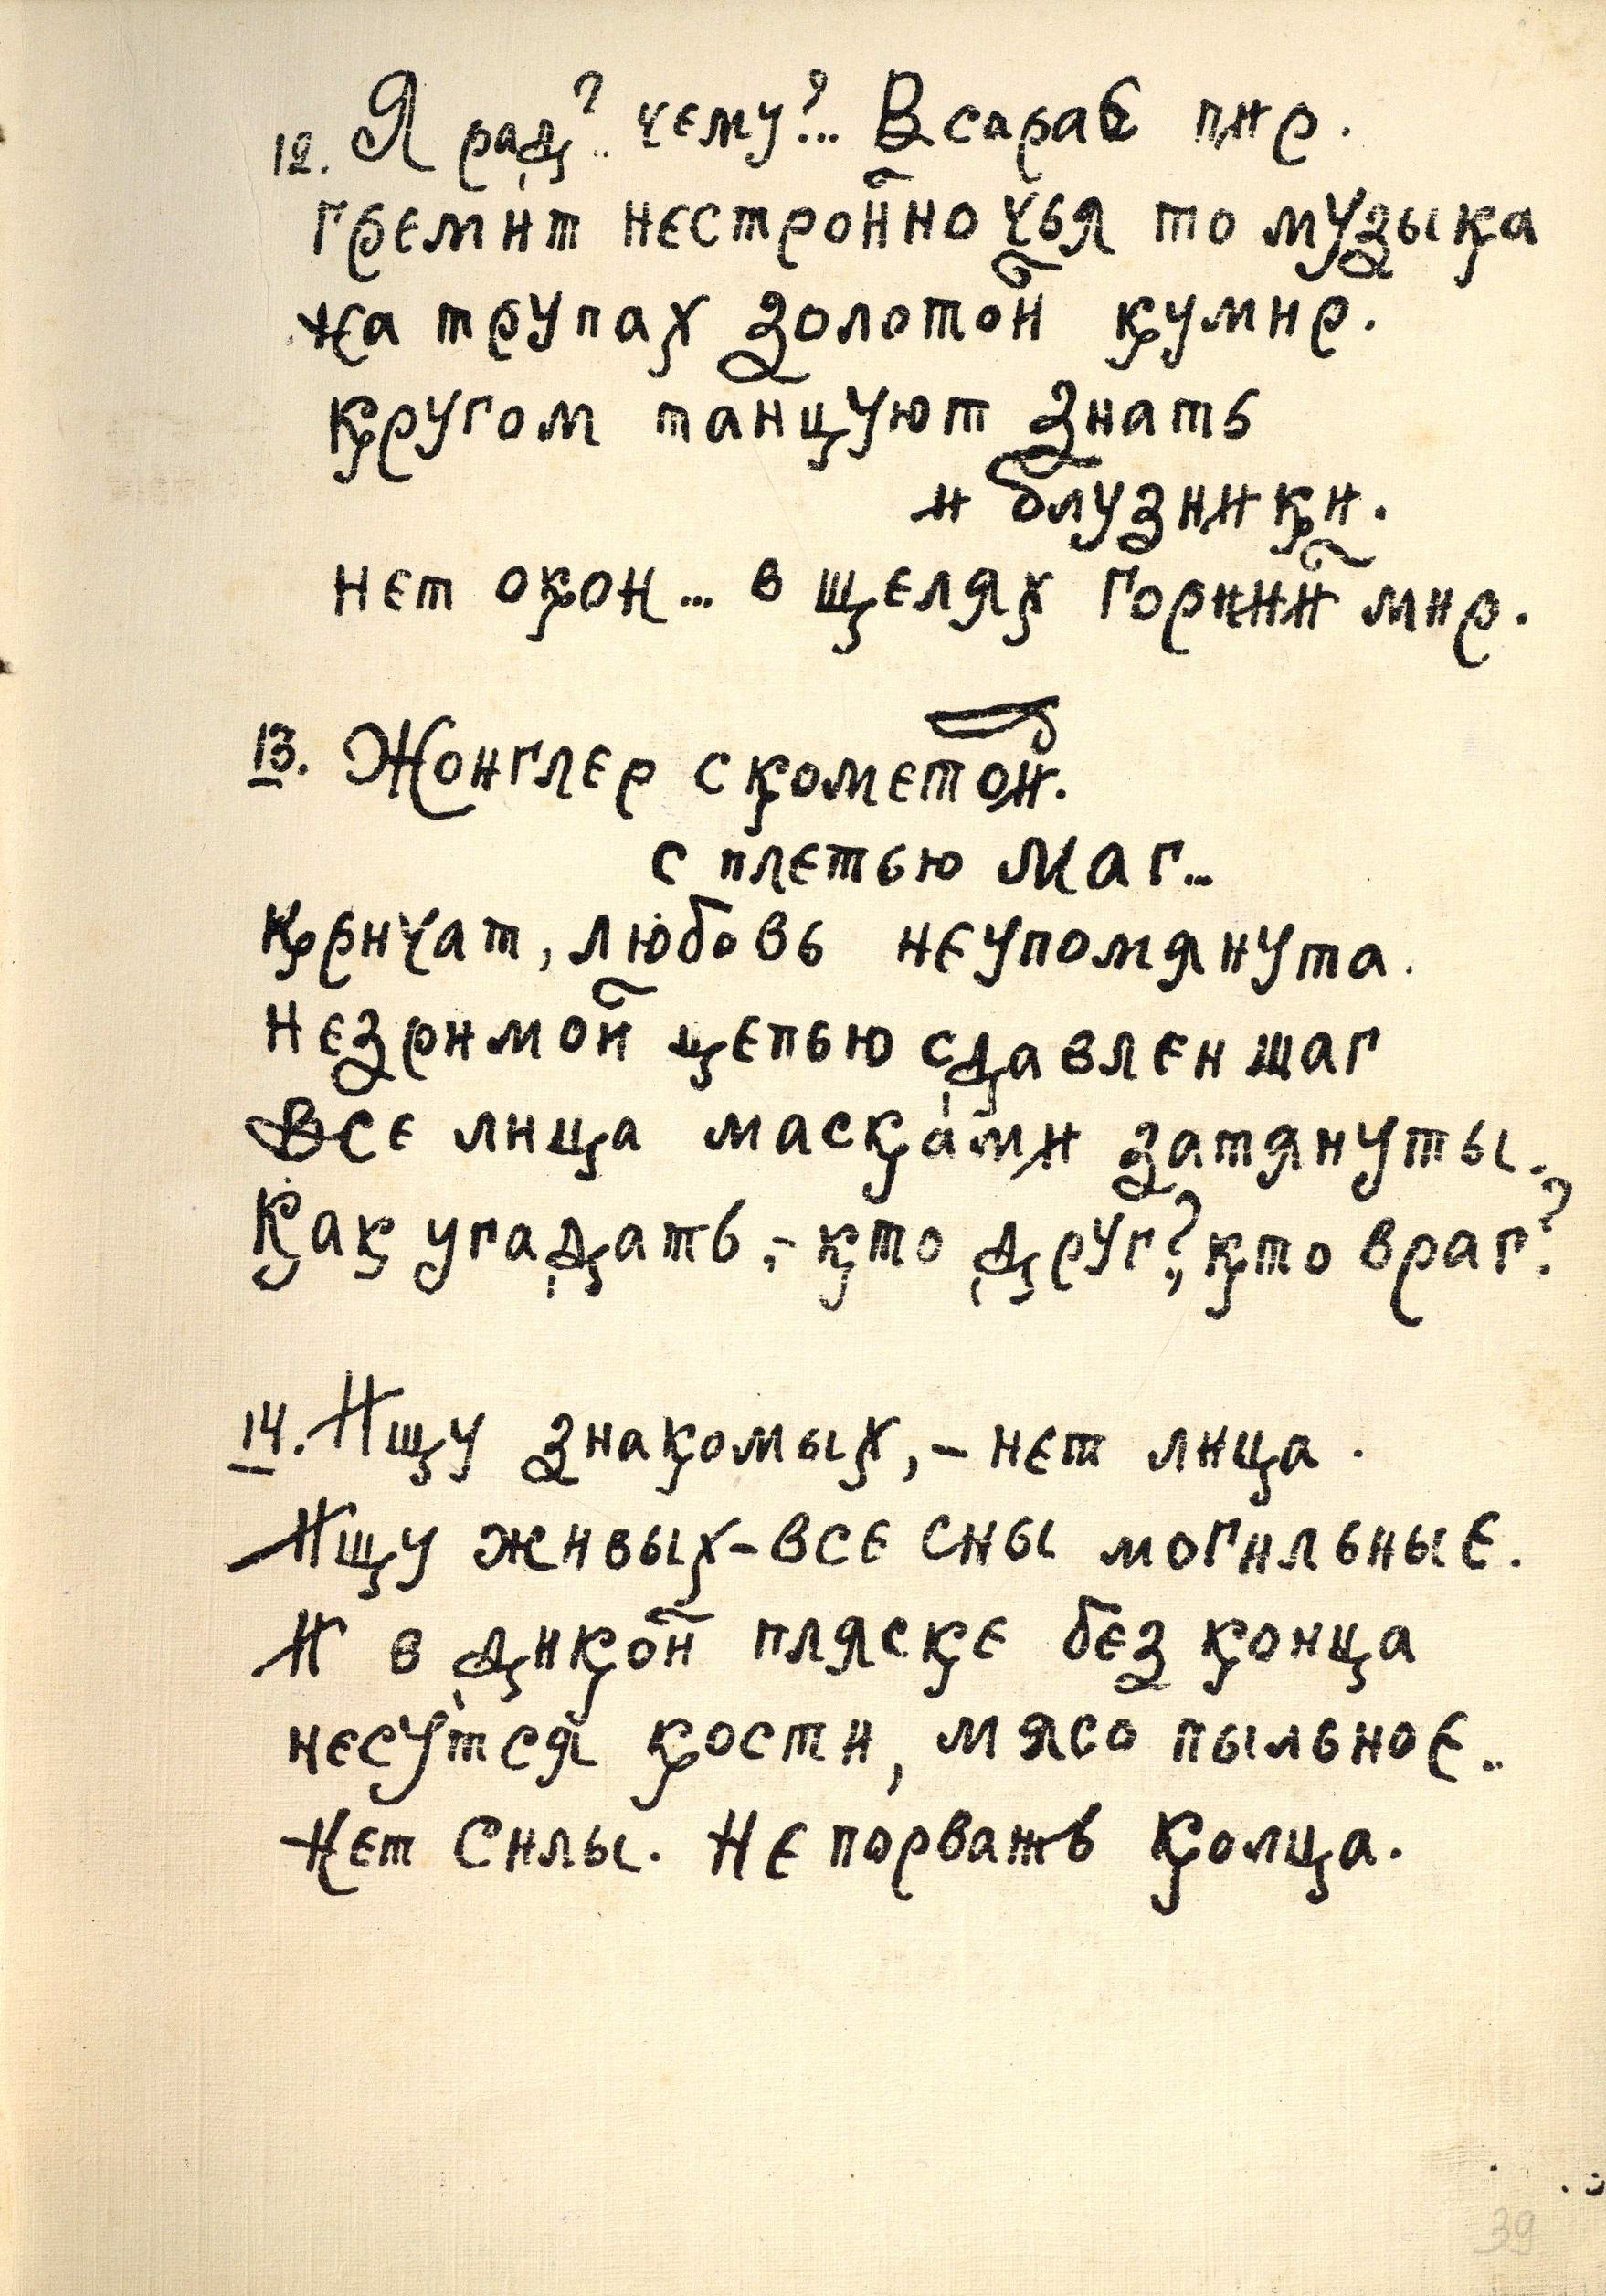 12. Я рад?.. чему?... В сарае пир.
гремит нестройно чья то музыка
на трупах золотой кумир.
кругом танцуют знать
и блузники.
нет окон... в щелях горний мир.
13. Жонглер с кометой.
с плетью маг...
кричат, любовь неупомянута.
незримой цепью сдавлен шаг
Все лица масками затянуты.
Как угадать,- кто друг?, кто враг?
14. Ищу знакомых,- нет лица.
Ищу живых-все сны могильные.
И в дикой пляске без конца
несутся кости, мясо пыльное..
Нет силы. Не порвать кольца.
39